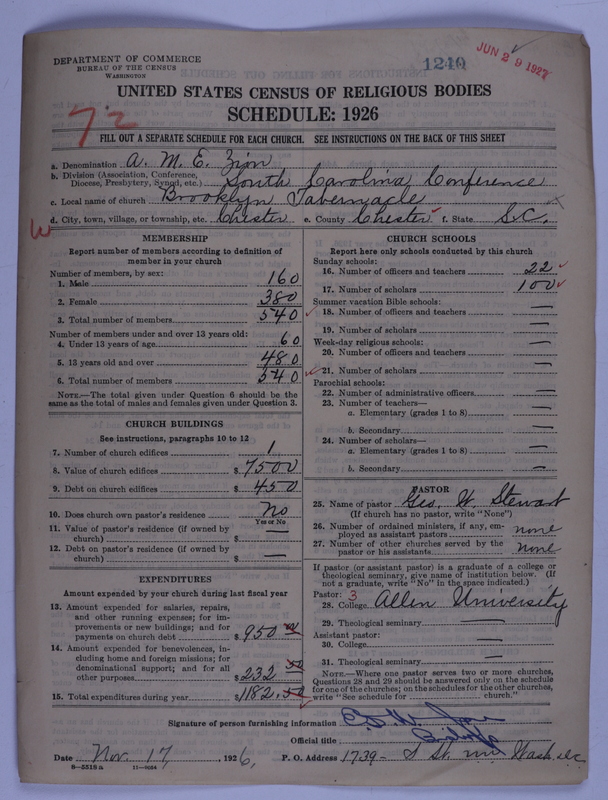 DEPARTMENT OF COMMERCE
BUREAU OF THE CENSUS
WASHINGTON
1240
JUN 29 1927
UNITED STATES CENSUS OF RELIGIOUS BODIES
SCHEDULE: 1926
72
FILL OUT A SEPARATE SCHEDULE FOR EACH CHURCH. SEE INSTRUCTIONS ON THE BACK OF THIS SHEET
a. Denomination A. M. E. Zion
b. Division (Association, Conference, Diocese, Presbytery, Synod, etc.) South Carolina Conference
c. Local name of church Brooklyn Tabernacle
d. City, town, village, or township, etc. Chester e. County Chester f. State S.C.
W
MEMBERSHIP
Report number of members according to definition of
member in your church
Number of members, by sex:
1. Male 160
2. Female 380
3. Total number of members 540
Number of members under and over 13 years old:
4. Under 13 years of age 60
5. 13 years old and over 480
6. Total number of members 540
NOTE.—The total given under Question 6 should be the
same as the total of males and females given under Question 3.
CHURCH BUILDINGS
See instructions, paragraphs 10 to 12
7. Number of church edifices 1
8. Value of church edifices $ 7500
9. Debt on church edifices $ 450
10. Does church own pastor's residence No
Yes or No
11. Value of pastor's residence (if owned by
church) $ —
12. Debt on pastor's residence (if owned by
church) $ —
EXPENDITURES
Amount expended by your church during last fiscal year
13. Amount expended for salaries, repairs,
and other running expenses; for im-
provements or new buildings; and for
payments on church debt $ 950
14. Amount expended for benevolences, in-
cluding home and foreign missions; for
denominational support; and for all
other purposes $ 232
15. Total expenditures during year $ 1182.50
CHURCH SCHOOLS
Report here only schools conducted by this church
Sunday schools:
16. Number of officers and teachers 22
17. Number of scholars 100
Summer vacation Bible schools:
18. Number of officers and teachers —
19. Number of scholars —
Week-day religious schools:
20. Number of officers and teachers —
21. Number of scholars —
Parochial schools:
22. Number of administrative officers —
23. Number of teachers—
a. Elementary (grades 1 to 8) —
b. Secondary —
24. Number of scholars—
a. Elementary (grades 1 to 8) —
b. Secondary —
PASTOR
25. Name of pastor Geo. W. Stewart
(If church has no pastor, write "None")
26. Number of ordained ministers, if any, em-
ployed as assistant pastors none
27. Number of other churches served by the
pastor or his assistants none
If pastor (or assistant pastor) is a graduate of a college or
theological seminary, give name of institution below. (If
not a graduate, write "No" in the space indicated.)
Pastor: 3
28. College Allen University
29. Theological seminary —
Assistant pastor:
30. College —
31. Theological seminary —
NOTE.—Where one pastor serves two or more churches,
Questions 28 and 29 should be answered only on the schedule
for one of the churches; on the schedules for the other churches,
write "See schedule for church."
Signature of person furnishing information
Official title Bishop
Date Nov. 17, 1926, P. O. Address 1739- S St. nw Wash. D.C.
8—5518a 11—9034